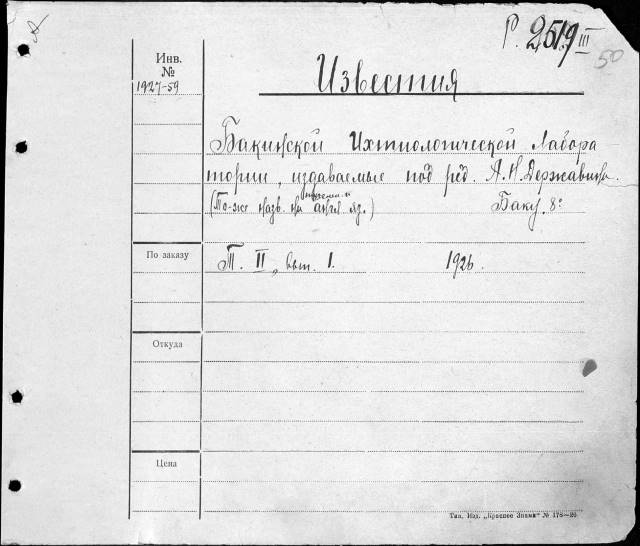 Р. 2519 III
50
Инв.
№
1927-59
Известия
Бакинской Ихтиологической Лабора
тории, издаваемые под ред. А. Н. Державина.
(То-же назв. на англ. яз.)
Баку. 8°
По заказу
Т. II, вып. 1. 1926.
Откуда
Цена
Тип. Изд. „Красное Знамя“ № 178—26